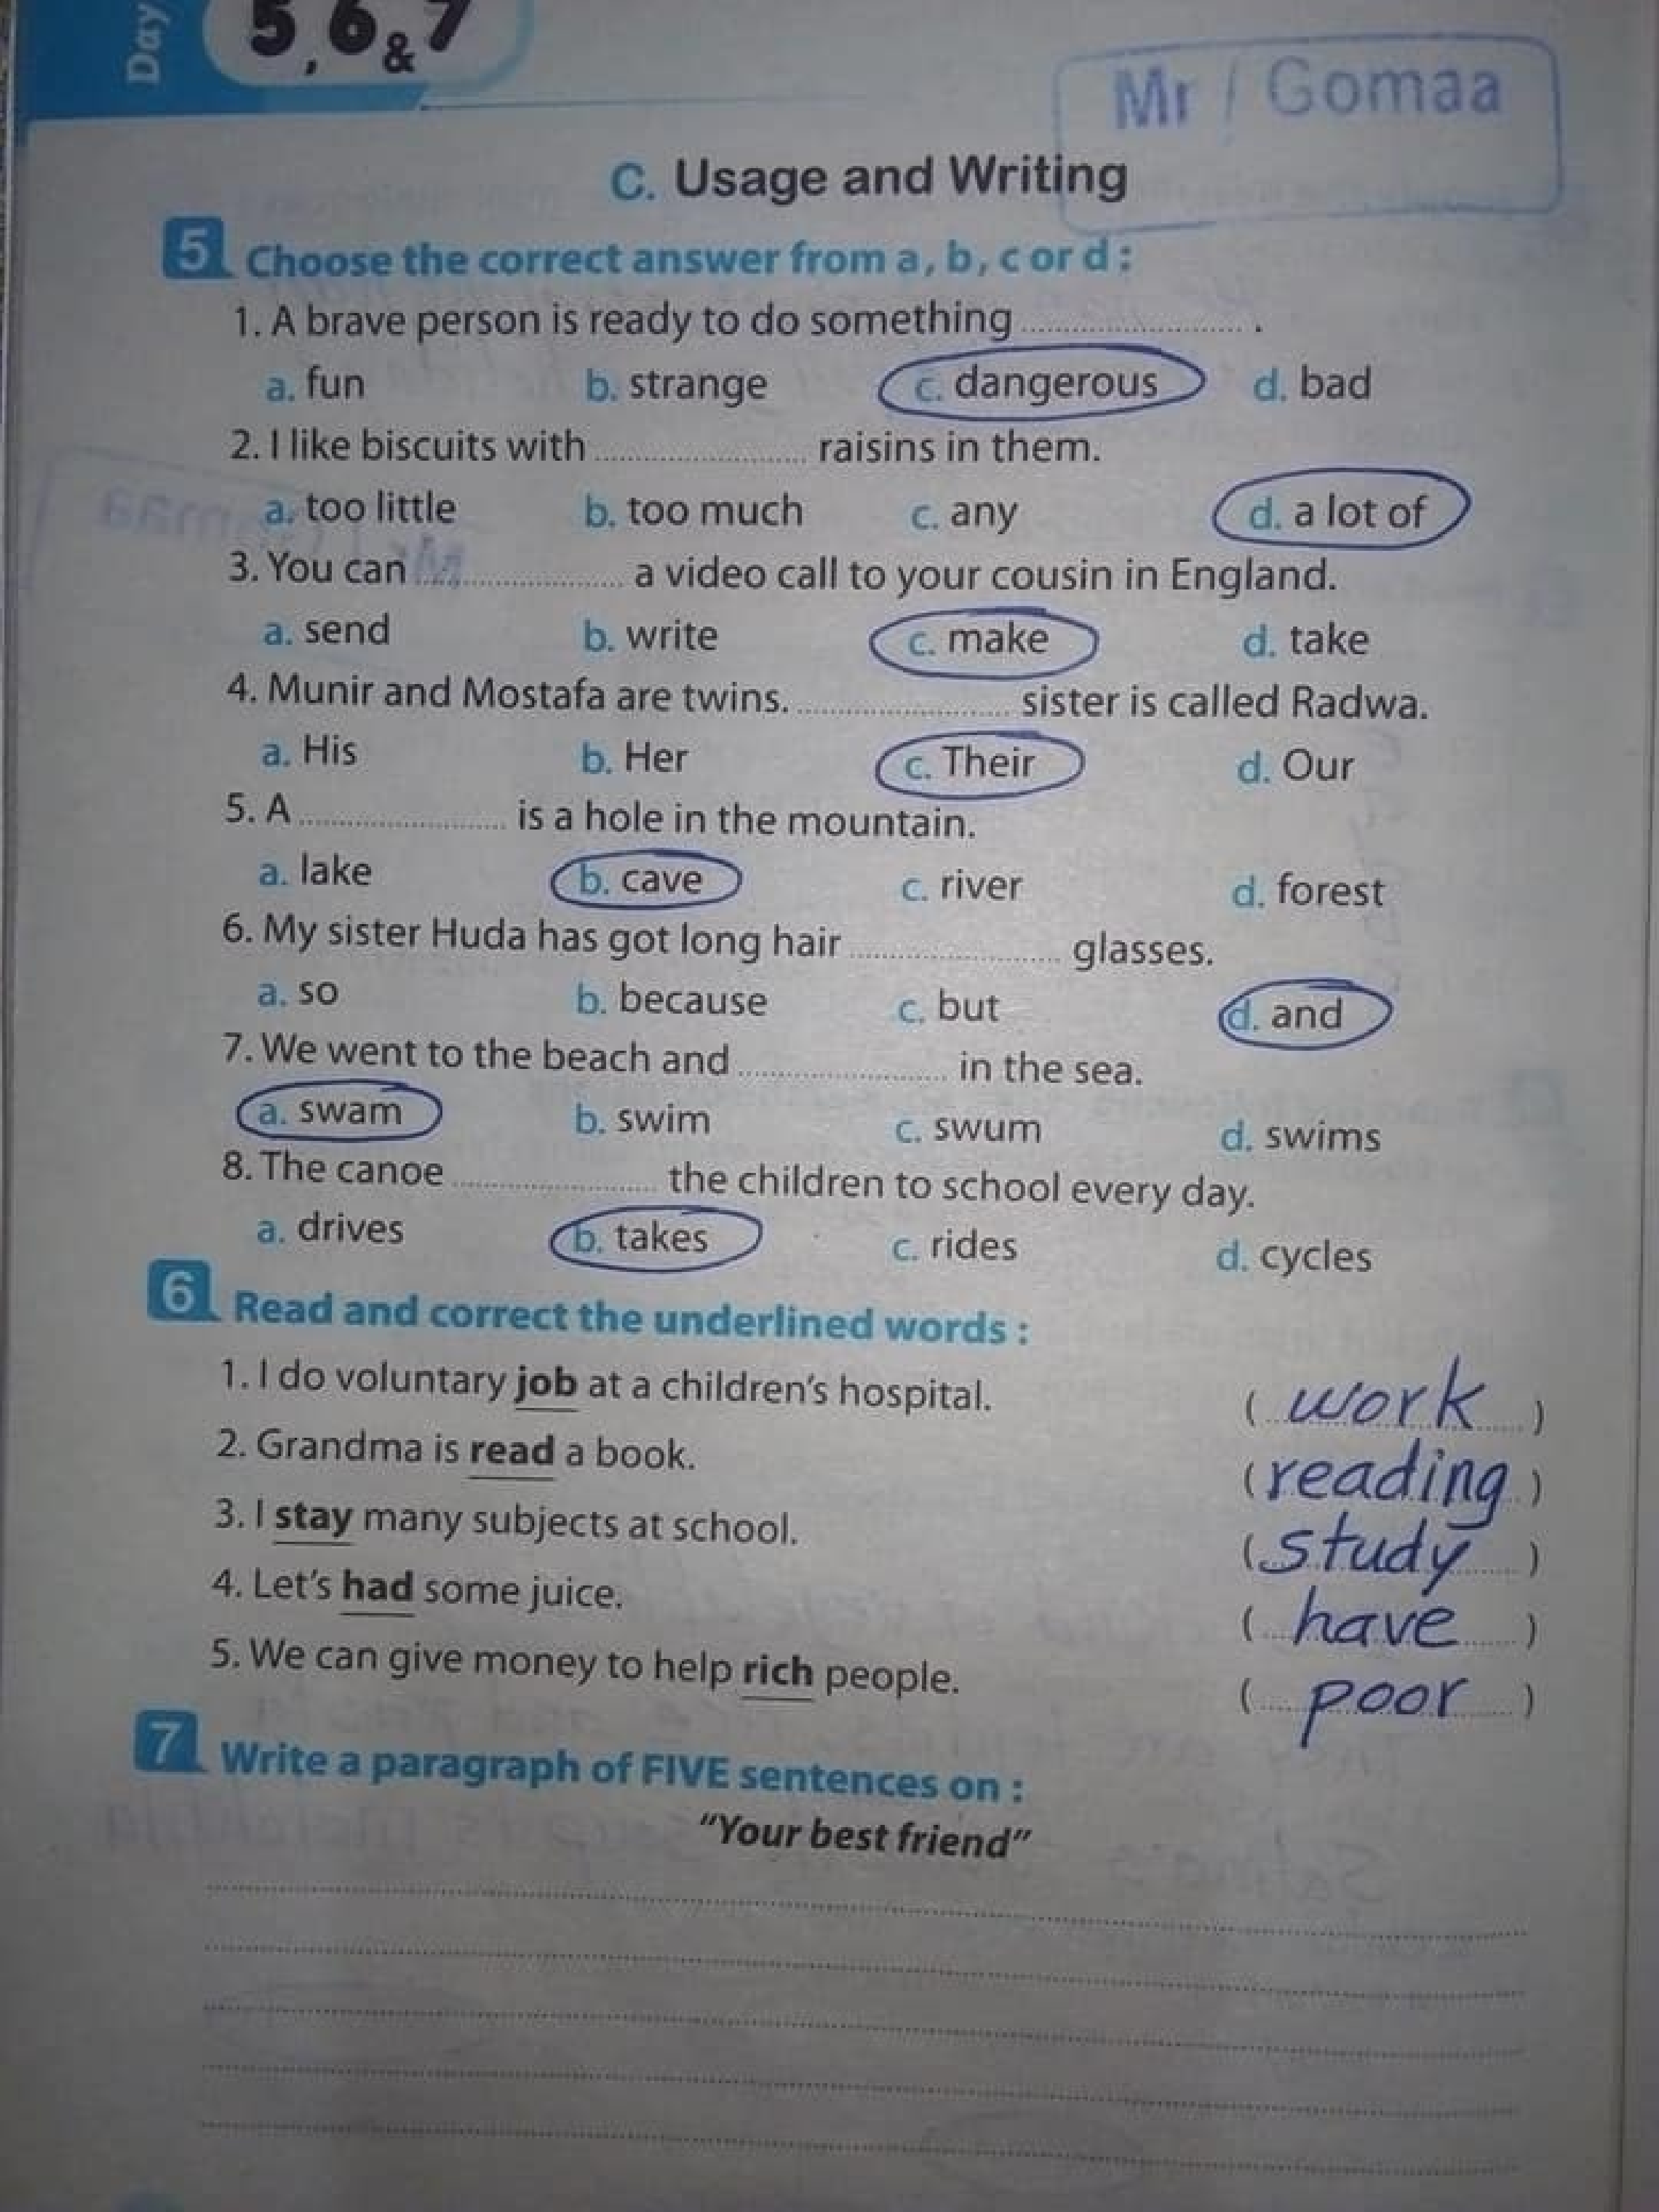 Day 5, 6 & 7
Mr / Gomaa
C. Usage and Writing
5 Choose the correct answer from a, b, c or d :
1. A brave person is ready to do something .................... .
a. fun b. strange c. dangerous d. bad
2. I like biscuits with .................... raisins in them.
a. too little b. too much c. any d. a lot of
3. You can .................... a video call to your cousin in England.
a. send b. write c. make d. take
4. Munir and Mostafa are twins. .................... sister is called Radwa.
a. His b. Her c. Their d. Our
5. A .................... is a hole in the mountain.
a. lake b. cave c. river d. forest
6. My sister Huda has got long hair .................... glasses.
a. so b. because c. but d. and
7. We went to the beach and .................... in the sea.
a. swam b. swim c. swum d. swims
8. The canoe .................... the children to school every day.
a. drives b. takes c. rides d. cycles
6 Read and correct the underlined words :
1. I do voluntary job at a children's hospital. ( work )
2. Grandma is read a book. ( reading )
3. I stay many subjects at school. ( study )
4. Let's had some juice. ( have )
5. We can give money to help rich people. ( poor )
7 Write a paragraph of FIVE sentences on :
"Your best friend"